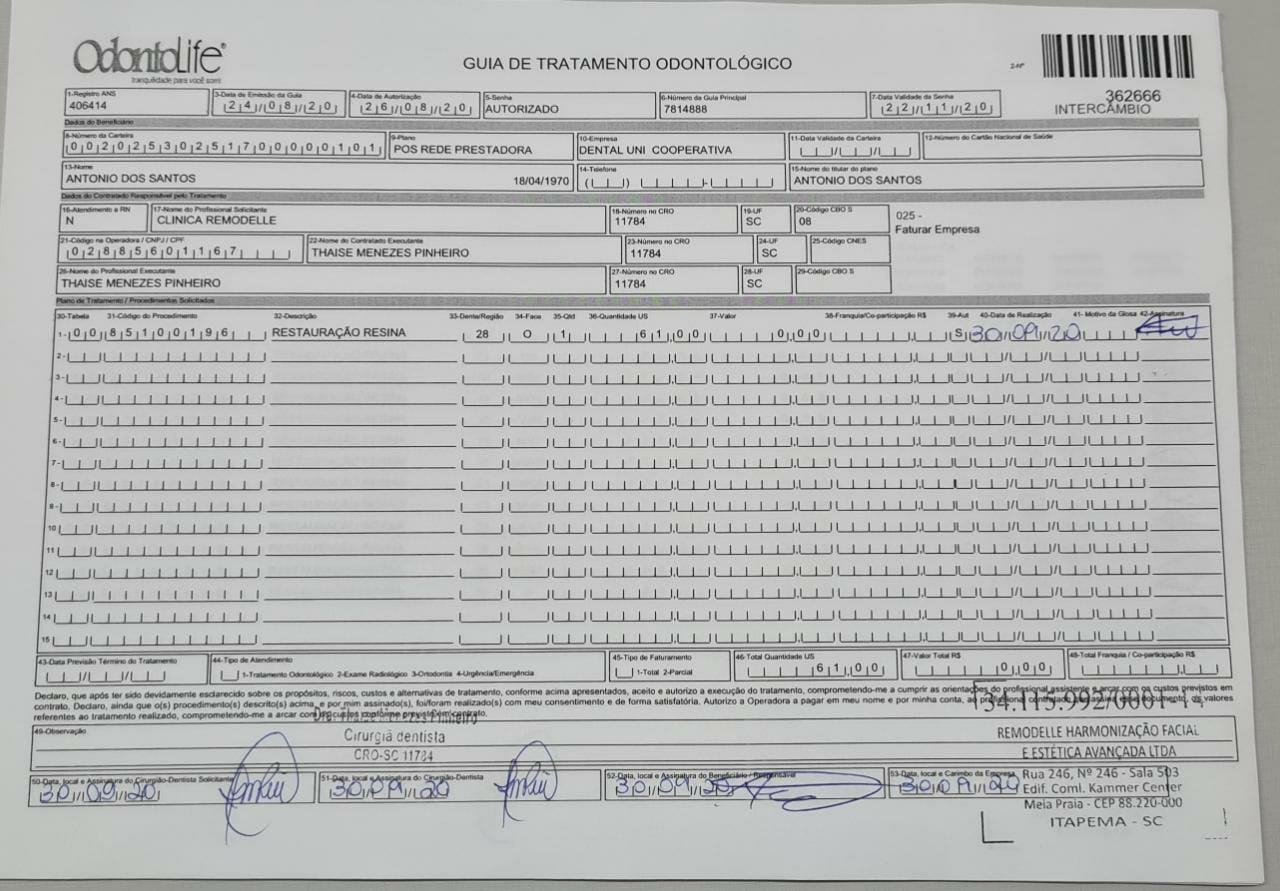 OdontoLife®
tranquilidade para você sorrir
GUIA DE TRATAMENTO ODONTOLÓGICO
362666
INTERCÂMBIO
1-Registro ANS 3-Data de Emissão da Guia 4-Data de Autorização 5-Senha 6-Número da Guia Principal 7-Data Validade da Senha
406414 24/08/20 26/08/20 AUTORIZADO 7814888 22/11/20
Dados do Beneficiário
8-Número da Carteira 9-Plano 10-Empresa 11-Data Validade da Carteira 12-Número do Cartão Nacional de Saúde
00202530251700000101 POS REDE PRESTADORA DENTAL UNI COOPERATIVA
13-Nome 14-Telefone 15-Nome do titular do plano
ANTONIO DOS SANTOS 18/04/1970 ANTONIO DOS SANTOS
Dados do Contratado Responsável pelo Tratamento
16-Atendimento a RN 17-Nome do Profissional Solicitante 18-Número no CRO 19-UF 20-Código CBO S
N CLINICA REMODELLE 11784 SC 08
025 -
Faturar Empresa
21-Código na Operadora / CNPJ / CPF 22-Nome do Contratado Executante 23-Número no CRO 24-UF 25-Código CNES
02885601167 THAISE MENEZES PINHEIRO 11784 SC
26-Nome do Profissional Executante 27-Número no CRO 28-UF 29-Código CBO S
THAISE MENEZES PINHEIRO 11784 SC
Plano de Tratamento / Procedimentos Solicitados
30-Tabela 31-Código do Procedimento 32-Descrição 33-Dente/Região 34-Face 35-Qtd 36-Quantidade US 37-Valor 38-Franquia/Co-participação R$ 39-Aut 40-Data de Realização 41- Motivo da Glosa 42-Assinatura
1- 00 85100196 RESTAURAÇÃO RESINA 28 O 1 61,00 0,00 S 30/09/20
2-
3-
4-
5-
6-
7-
8-
9-
10
11
12
13
14
15
43-Data Previsão Término do Tratamento 44-Tipo de Atendimento 45-Tipo de Faturamento 46-Total Quantidade US 47-Valor Total R$ 48-Total Franquia / Co-participação R$
1-Tratamento Odontológico 2-Exame Radiológico 3-Ortodontia 4-Urgência/Emergência 1-Total 2-Parcial 61,00 0,00
Declaro, que após ter sido devidamente esclarecido sobre os propósitos, riscos, custos e alternativas de tratamento, conforme acima apresentados, aceito e autorizo a execução do tratamento, comprometendo-me a cumprir as orientações do profissional assistente e arcar com os custos previstos em
contrato. Declaro, ainda que o(s) procedimento(s) descrito(s) acima, e por mim assinado(s), foi/foram realizado(s) com meu consentimento e de forma satisfatória. Autorizo a Operadora a pagar em meu nome e por minha conta, ao profissional contratado os valores
referentes ao tratamento realizado, comprometendo-me a arcar com os custos conforme previsto em contrato.
49-Observação
Cirurgiã dentista
CRO-SC 11784
REMODELLE HARMONIZAÇÃO FACIAL
E ESTÉTICA AVANÇADA LTDA
50-Data, local e Assinatura do Cirurgião-Dentista Solicitante 51-Data, local e Assinatura do Cirurgião-Dentista 52-Data, local e Assinatura do Beneficiário / Responsável 53-Data, local e Carimbo da Empresa
30/09/20 30/09/20 30/09/20 30/09/20
Rua 246, Nº 246 - Sala 503
Edif. Coml. Kammer Center
Meia Praia - CEP 88.220-000
ITAPEMA - SC